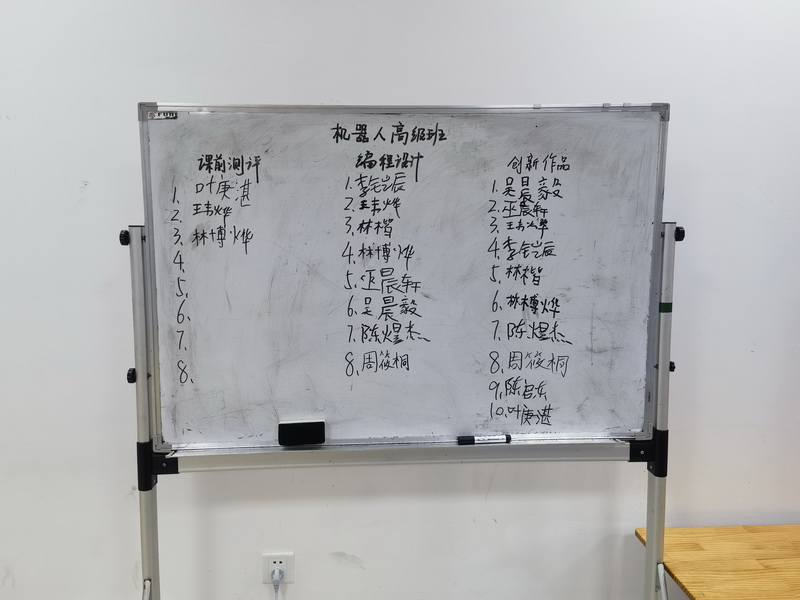 机器人高级班
课前测评
1.叶庚湛
2.王韦烨
3.林博烨
4.
5.
6.
7.
8.
编程设计
1.李铠辰
2.王韦烨
3.林楷
4.林博烨
5.巫晨轩
6.吴晨毅
7.陈煜杰
8.周筱桐
创新作品
1.吴晨毅
2.巫晨轩
3.王韦烨
4.李铠辰
5.林楷
6.林博烨
7.陈煜杰
8.周筱桐
9.陈启东
10.叶庚湛